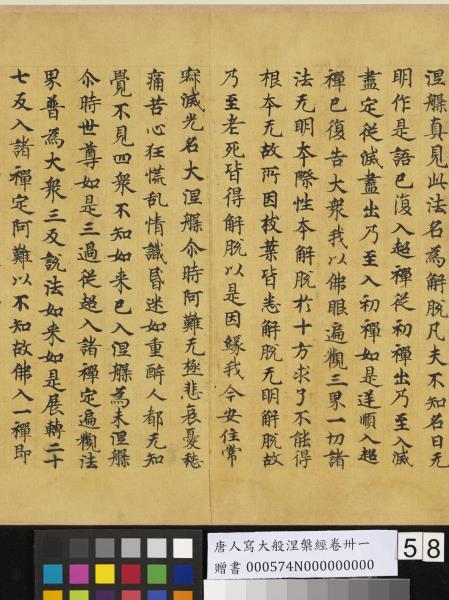 涅槃真見此法名為解脫凡夫不知名曰无
明作是語已復入超禪從初禪出乃至入滅
盡定從滅盡出乃至入初禪如是逆順入超
禪已復告大衆我以佛眼遍觀三界一切諸
法无明本際性本解脫於十方求了不能得
根本无故所因枝葉皆悉解脫无明解脫故
乃至老死皆得解脫以是因緣我今安住常
寂滅光名大涅槃尒時阿難无極悲哀憂愁
痛苦心狂慌乱情識昏迷如重醉人都无知
覺不見四衆不知如來已入涅槃為未涅槃
尒時世尊如是三過從超入諸禪定遍觀法
界普為大衆三反說法如來如是展轉二十
七反入諸禪定阿難以不知故佛入一禪即
唐人寫大般涅槃經卷卅一
贈書 000574N000000000
58